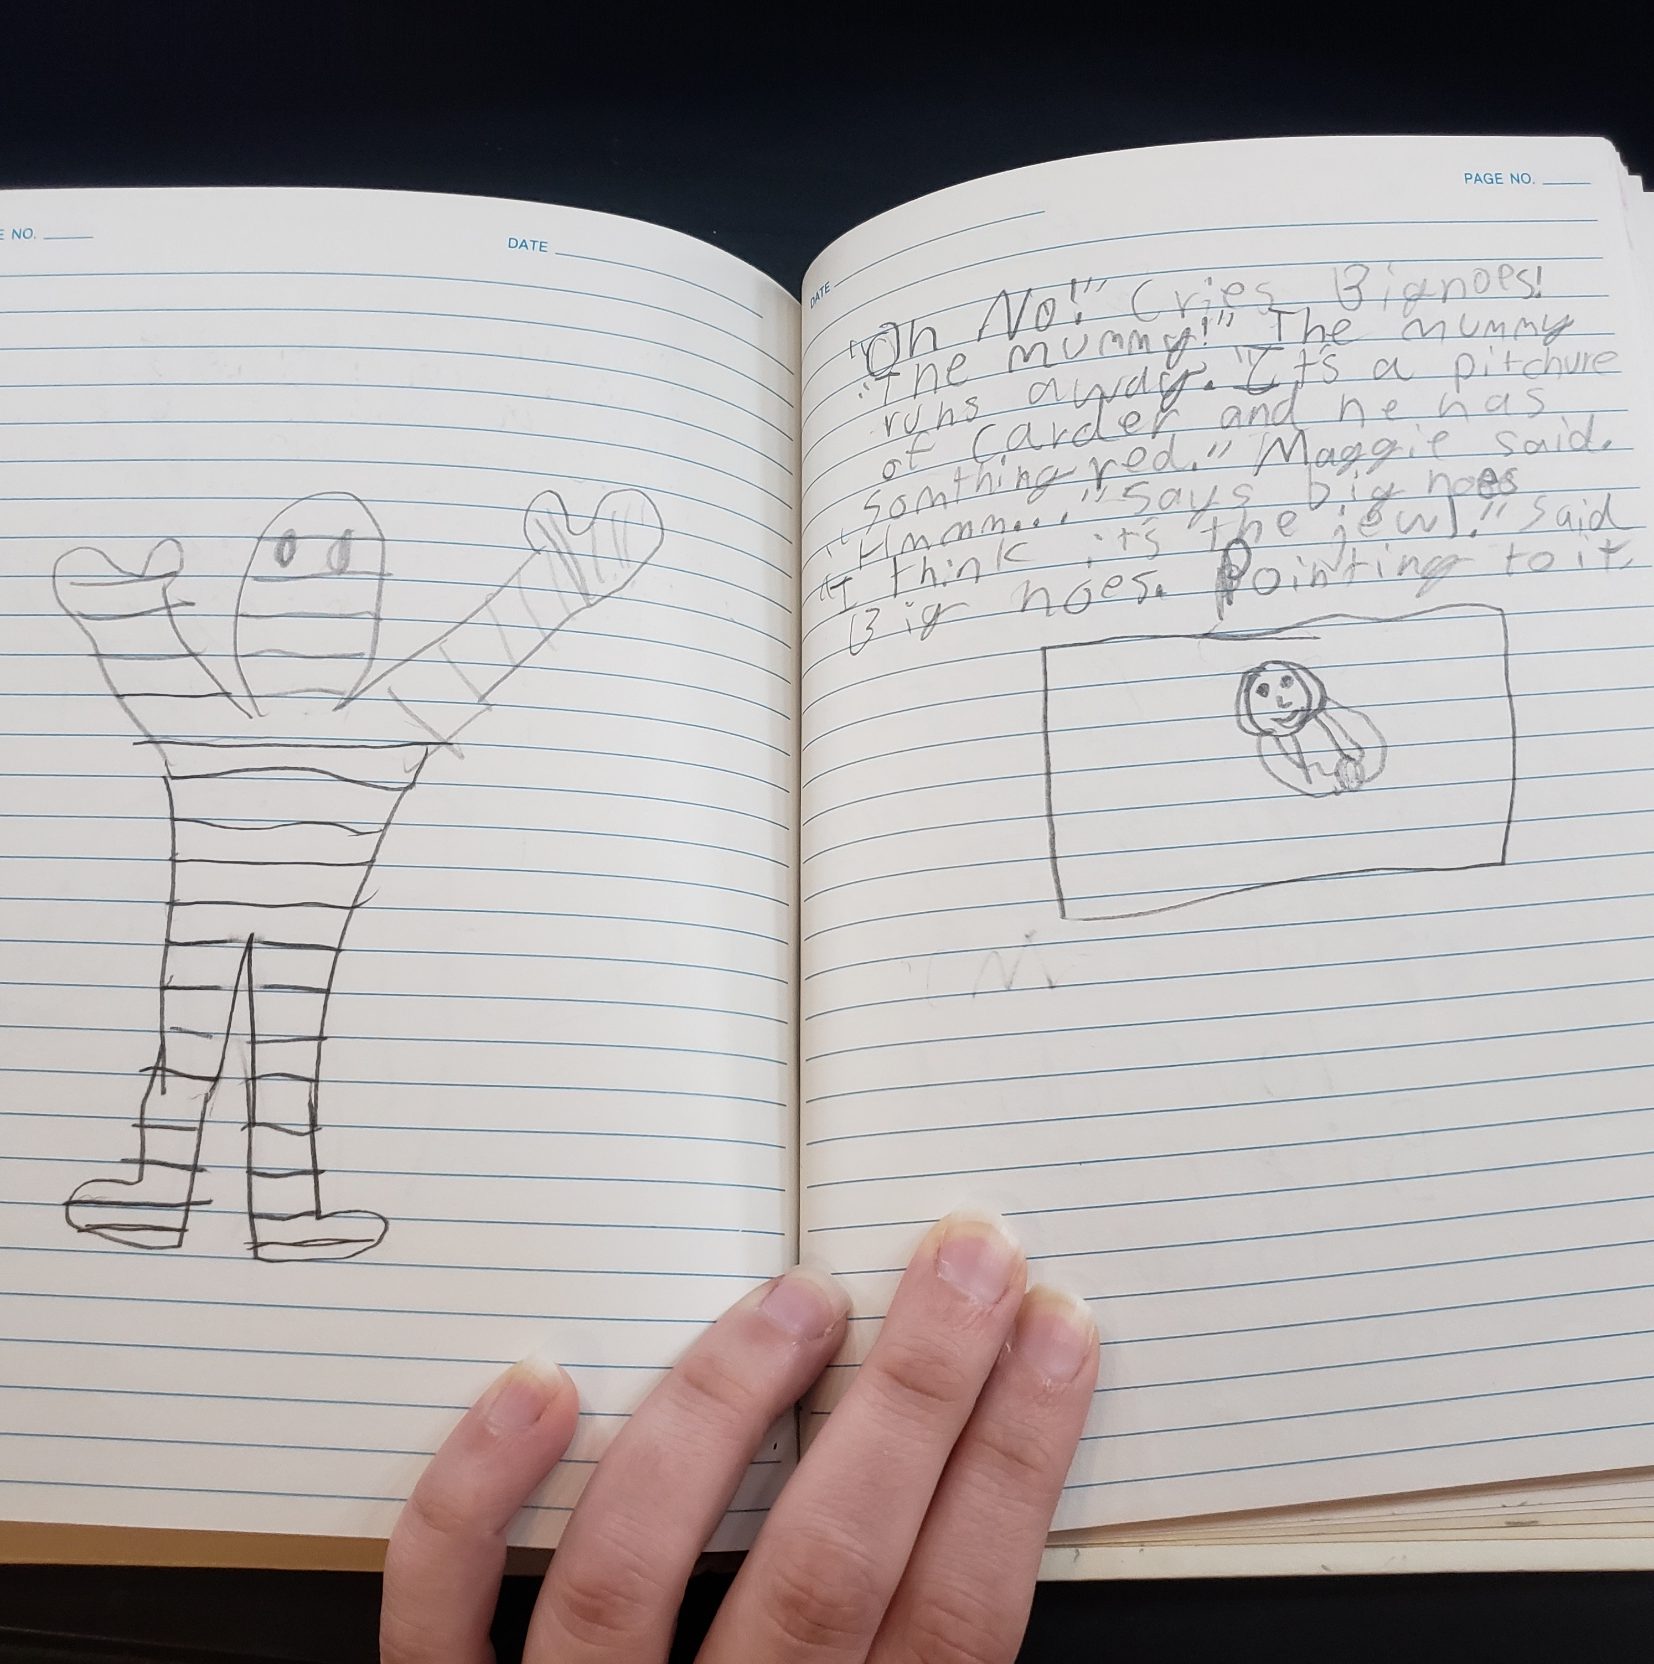 E NO.
DATE
DATE
PAGE NO.
"Oh No!" Cries Bignoes!
"The mummy!" The mummy
runs away. "It's a pitchure
of Carder and he has
somthing red." Maggie said.
"Hmmm..." says big noes
"I think it's the jewl." said
Big noes. Pointing to it.